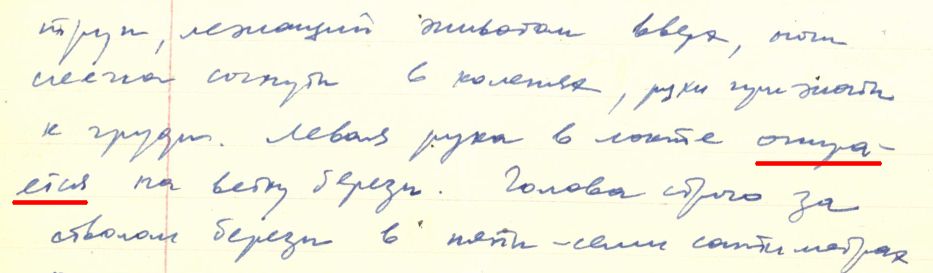 труп, лежащий животом вверх, ноги
слегка согнуты в коленях, руки прижаты
к груди. Левая рука в локте опира-
ется на ветку березы. Голова строго за
стволом березы в пяти-семи сантиметрах